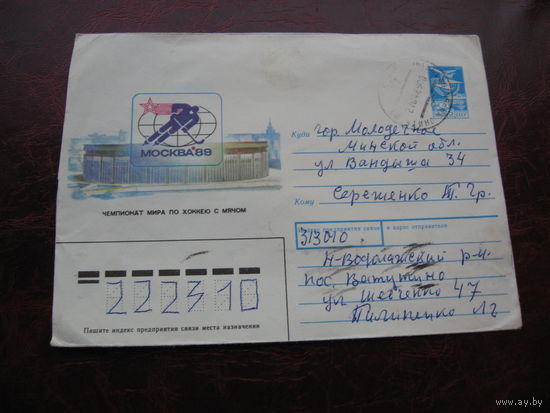 МОСКВА 89
ЧЕМПИОНАТ МИРА ПО ХОККЕЮ С МЯЧОМ
Куда гор. Молодечное
Минской обл.
ул Вандыша 34
Кому Сереженко Т. Гр.
предприятия связи и адрес отправителя
313010
Н-Водолажский р-н.
пос. Ватутино
ул Шевченко 47
Пилипенко Лг
222310
Пишите индекс предприятия связи места назначения
www.ay.by